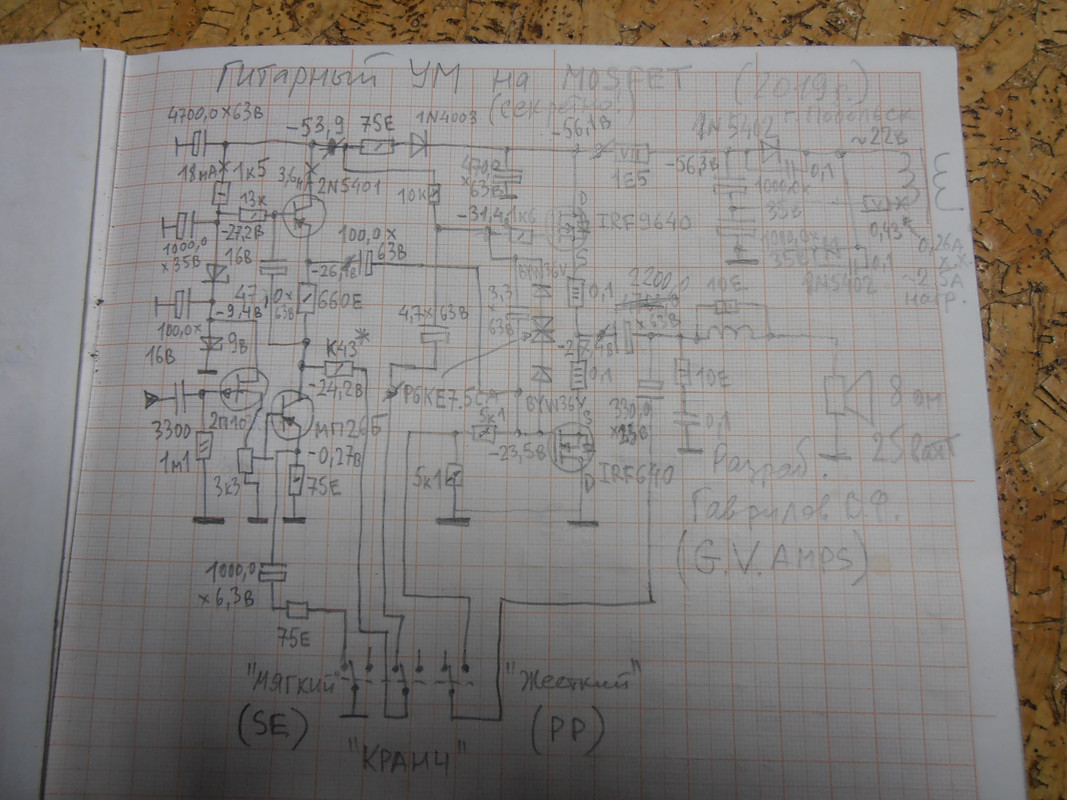 Гитарный УМ на MOSFET (2019г.)
(секретно!)
4700,0×63В
-53,9
75Е
1N4003
-56,1В
1N5402
~22В
18мА
1к5
3,6
2N5401
10к
470,0
×63В
1Е5
-56,3В
1000,0
35В
0,1
13к
-27,2В
1000,0
×35В
16В
-26,1В
100,0×
63В
-31,4
1к6
D
IRF9640
S
0,43*
0,26А
х.х.
~2,5А
нагр.
1N5402
0,1
47,0×
63В
660Е
-9,4В
100,0×
16В
9В
4,7×63В
3,3
63В
BYW36V
0,1
2200,0
×63В
10Е
К43*
-24,2В
P6KE7.5CA
0,1
BYW36V
10Е
330,0
0,1
8 ом
25 Ватт
3300
2П10
МП26Б
-0,27В
1м1
3к3
75Е
5к1
-23,5В
S
D
IRF640
5к1
Разраб.
Гаврилов В.Ф.
(G.V.AMPS)
1000,0
×6,3В
75Е
"Мягкий"
"Жесткий"
(SE)
(PP)
"КРАНЧ"